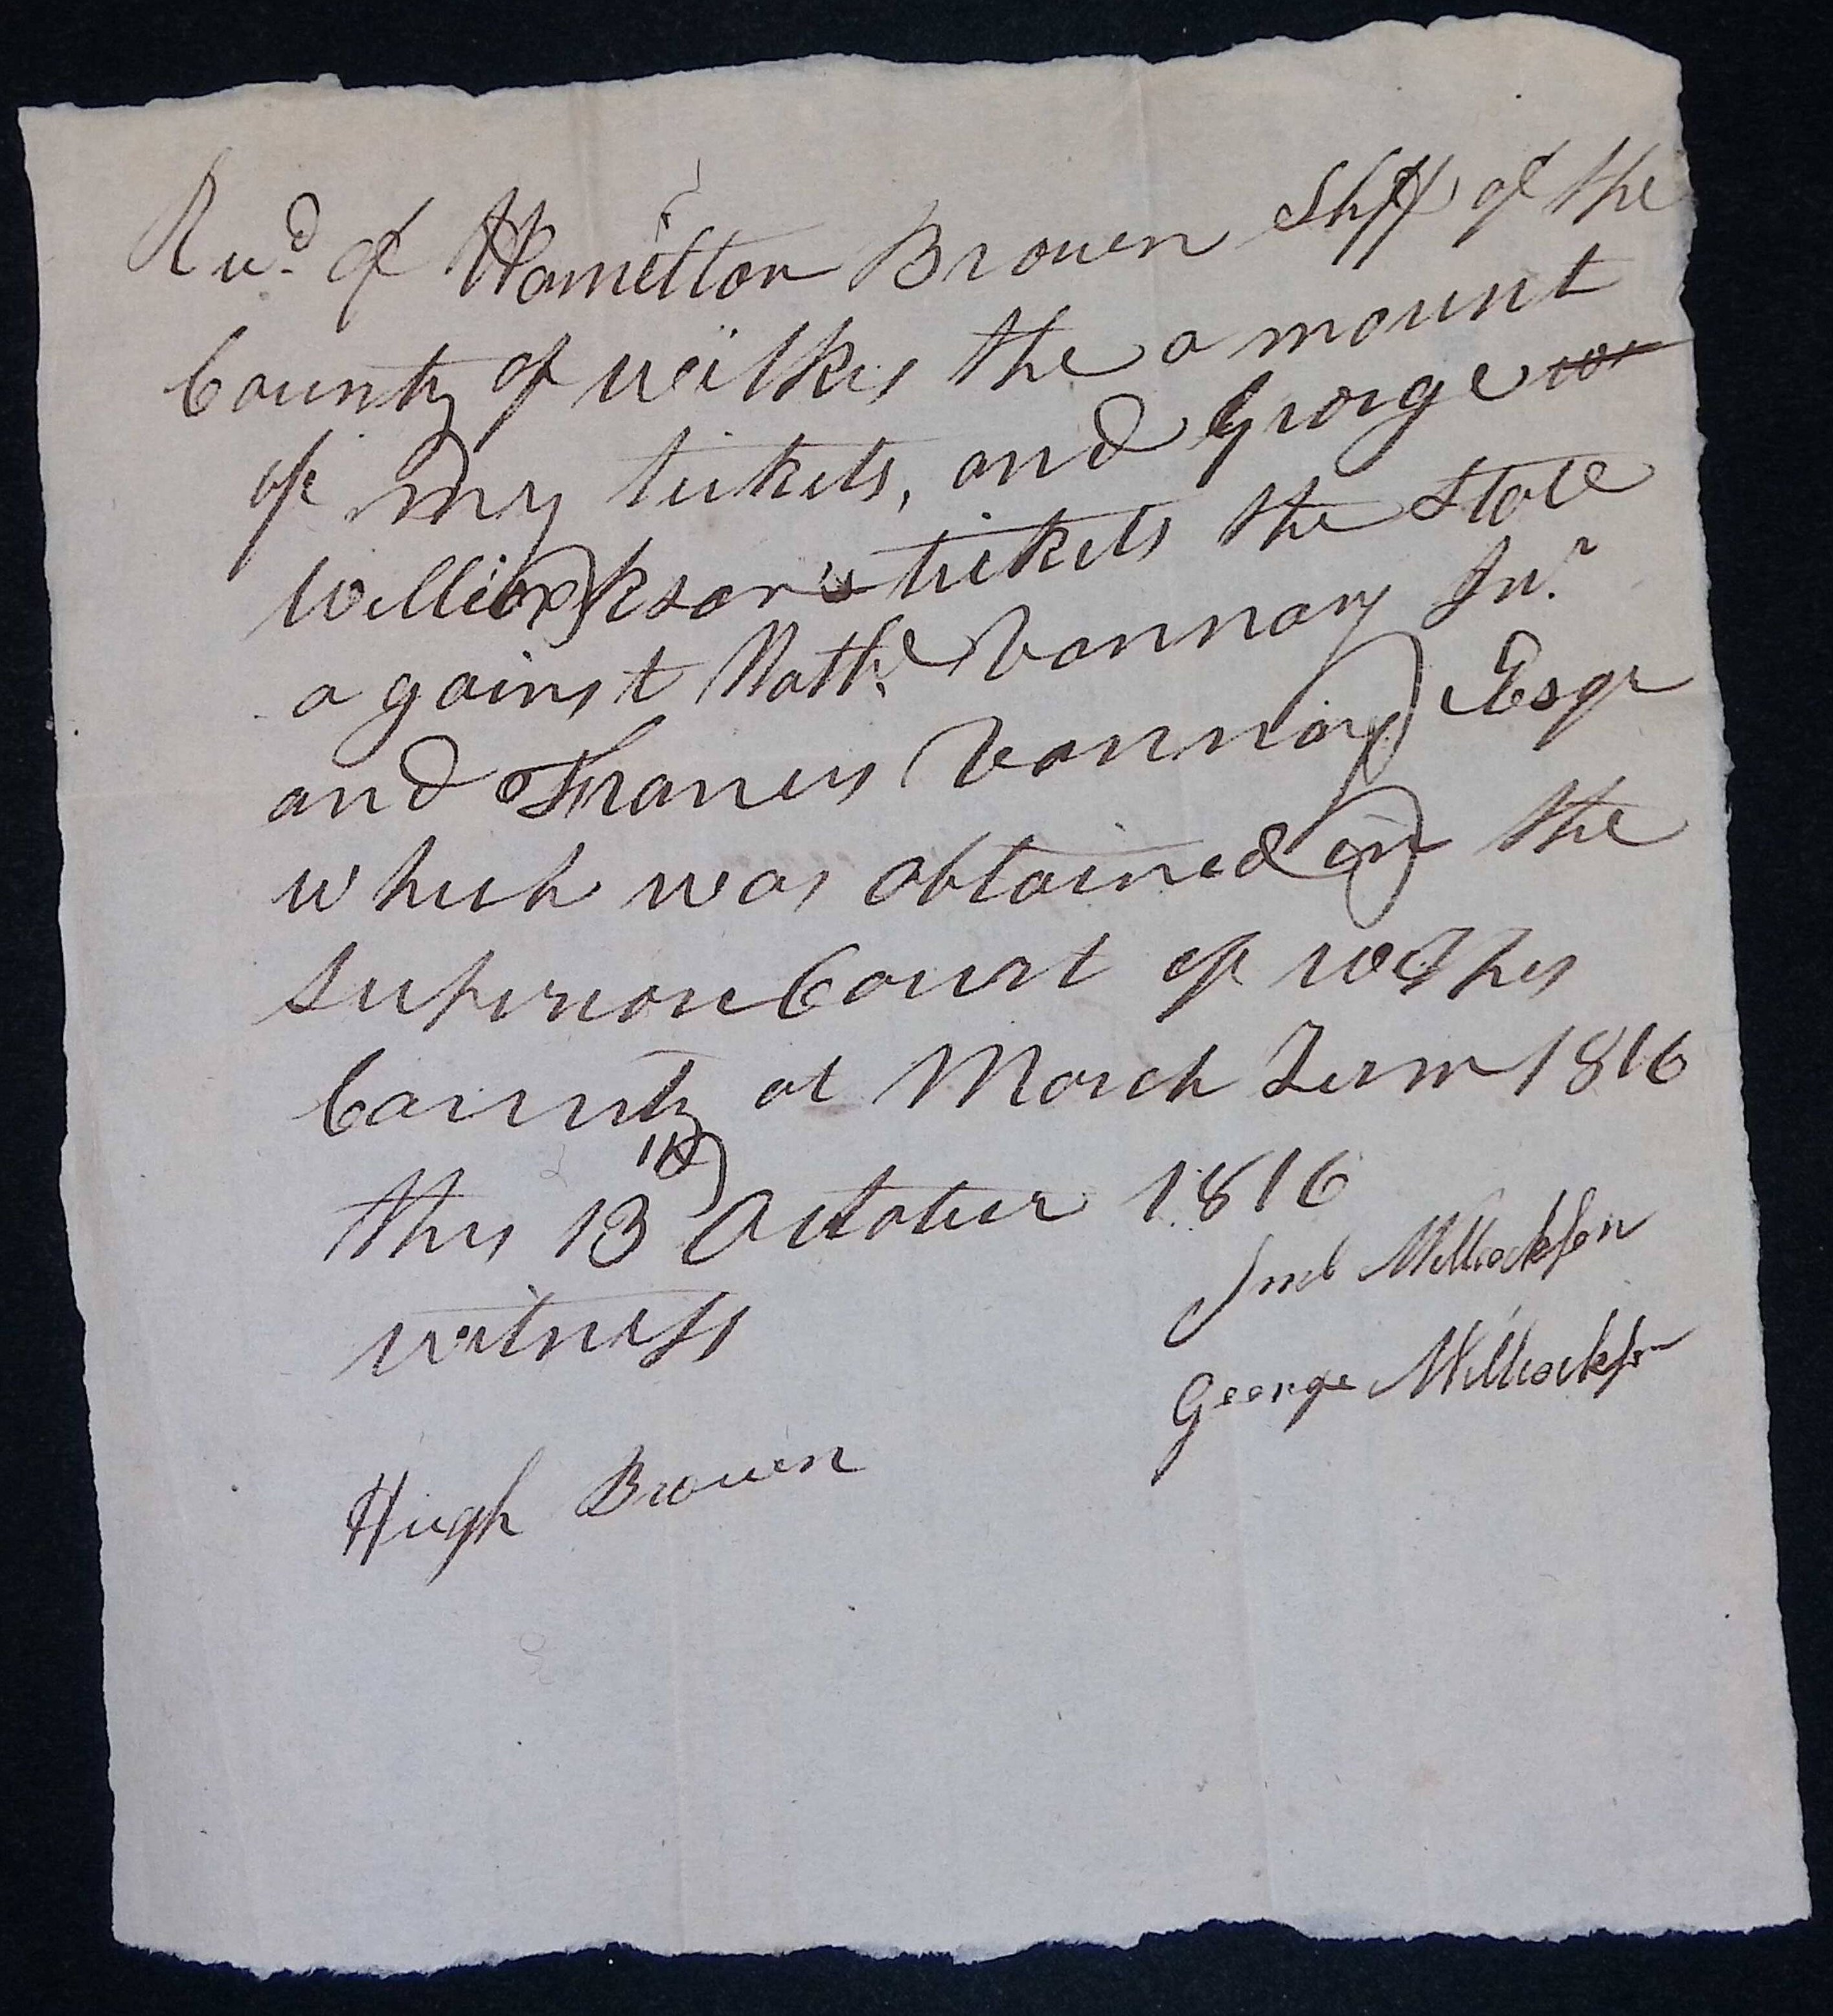 Recd of Hamilton Brown Shff of the
County of wilkes the amount
of my tickets, and George
Willcockson's tickets the State
against Nathl Vannoy Jnr
and Francis Vannoy Esqr
which was obtained in the
Superior Court of wilkes
County at March Term 1816
this 13th October 1816
witness
Willcockson
George Willcockson
Hugh Brown